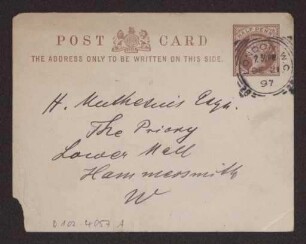 POST CARD
THE ADDRESS ONLY TO BE WRITTEN ON THIS SIDE.
LONDON W.C.
21
97
H. Muthesius Esqu.
The Priory
Lower Mall
Hammersmith
W